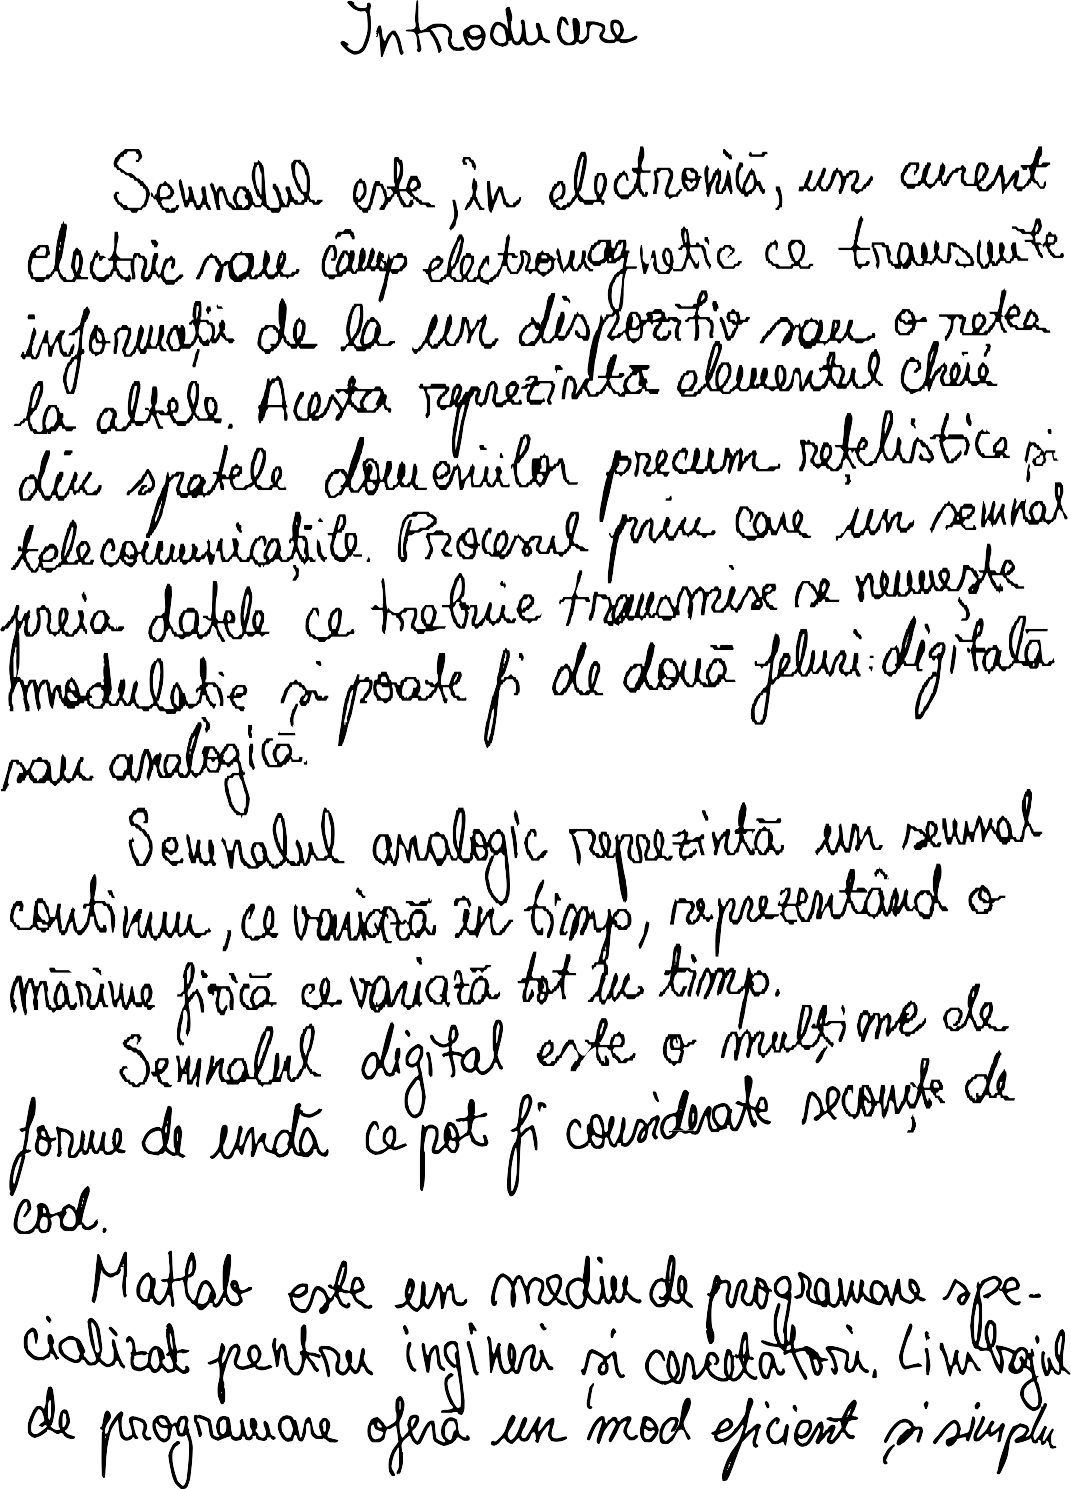 Introducere
Semnalul este, în electronică, un curent
electric sau câmp electromagnetic ce transmite
informații de la un dispozitiv sau o rețea
la altele. Acesta reprezintă elementul cheie
din spatele domeniilor precum rețelistica și
telecomunicațiile. Procesul prin care un semnal
preia datele ce trebuie transmise se numește
modulație și poate fi de două feluri: digitală
sau analogică.
Semnalul analogic reprezintă un semnal
continuu, ce variază în timp, reprezentând o
mărime fizică ce variază tot în timp.
Semnalul digital este o mulțime de
forme de undă ce pot fi considerate secvențe de
cod.
Matlab este un mediu de programare spe-
cializat pentru ingineri și cercetători. Limbajul
de programare oferă un mod eficient și simplu